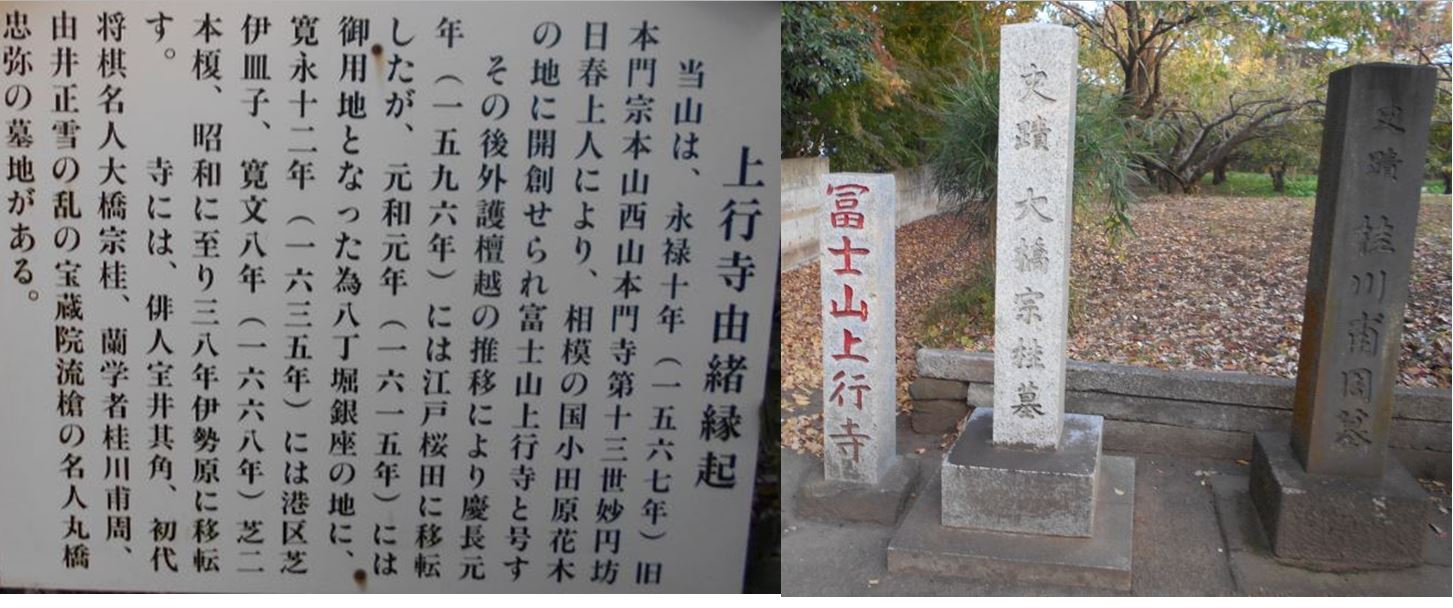 上行寺由緒縁起
当山は、永禄十年(一五六七年)旧
本門宗本山西山本門寺第十三世妙円坊
日春上人により、相模の国小田原花木
の地に開創せられ富士山上行寺と号す
その後外護檀越の推移により慶長元
年(一五九六年)には江戸桜田に移転
したが、元和元年(一六一五年)には
御用地となった為八丁堀銀座の地に、
寛永十二年(一六三五年)には港区芝
伊皿子、寛文八年(一六六八年)芝二
本榎、昭和に至り三八年伊勢原に移転
す。　寺には、俳人宝井其角、初代
将棋名人大橋宗桂、蘭学者桂川甫周、
由井正雪の乱の宝蔵院流槍の名人丸橋
忠弥の墓地がある。
冨士山上行寺
史蹟 大橋宗桂墓
史蹟 桂川甫周墓